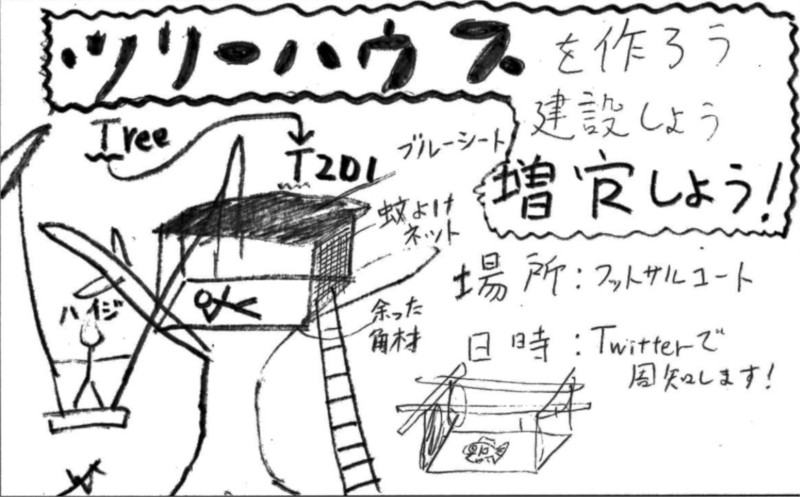 ツリーハウスを作ろう
建設しよう
増 しよう!
Tree
T201
ブルーシート
蚊よけ
ネット
余った
角材
ハイジ
場所:フットサルコート
日時:Twitterで
周知します!